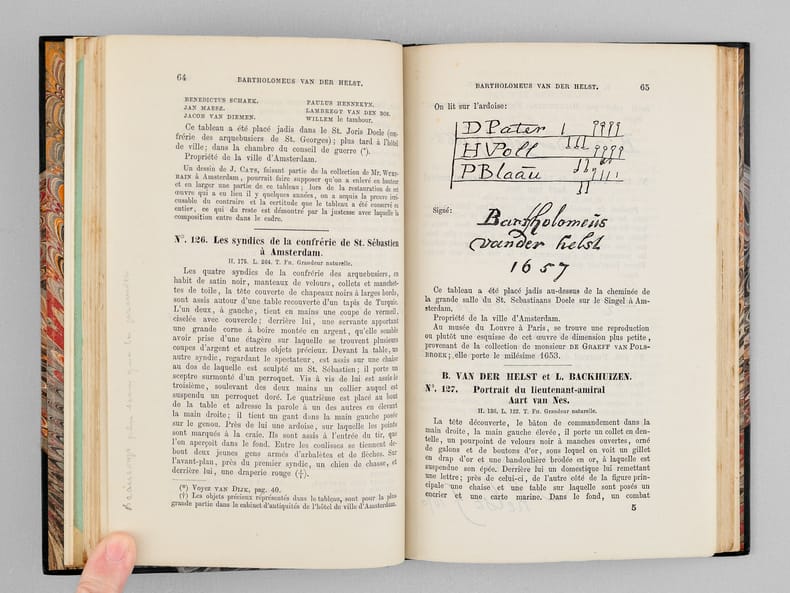 64
BARTHOLOMEUS VAN DER HELST.
BENEDICTUS SCHAEK.
JAN MAESZ.
JACOB VAN DIEMEN.
PAULUS HENNEKYN.
LAMBREGT VAN DEN BOS.
WILLEM le tambour.
Ce tableau a été placé jadis dans le St. Joris Doele (con-
frérie des arquebusiers de St. Georges); plus tard à l'hôtel
de ville; dans la chambre du conseil de guerre (*).
Propriété de la ville d'Amsterdam.
Un dessin de J. CATS, faisant partie de la collection de Mr.
à Amsterdam, pourrait faire supposer qu'on a enlevé en hauteur
et en largeur une partie de ce tableau; lors de la restauration de cet
œuvre qui a eu lieu il y quelques années, on a acquis la preuve irré-
cusable du contraire et la certitude que le tableau a été conservé en
entier, ce qui du reste est démontré par la justesse avec laquelle la
composition entre dans le cadre.
N°. 126. Les syndics de la confrérie de St. Sébastien
à Amsterdam.
H. 175. L. 264. T. Fn. Grandeur naturelle.
Les quatre syndics de la confrérie des arquebusiers, en
habit de satin noir, manteau de velours, collets et manchet-
tes de toile, la tête couverte de chapeaux noirs à larges bords,
sont assis autour d'une table recouverte d'un tapis de Turquie.
L'un deux, à gauche, tient en mains une coupe de vermeil,
ciselée avec couvercle; derrière lui, une servante apportant
une grande corne à boire montée en argent, qu'elle semble
avoir prise d'une étagère sur laquelle se trouvent plusieurs
coupes d'argent et autres objets précieux. Devant la table, un
autre syndic, regardant le spectateur, est assis sur une chaise
au dos de laquelle est sculpté un St. Sébastien; il porte un
sceptre surmonté d'un perroquet. Vis à vis de lui est assis le
troisième, soulevant des deux mains un collier auquel est
suspendu un perroquet doré. Le quatrième est placé au bout
de la table et adresse la parole à un des autres en élevant
la main droite; il tient un gant dans la main gauche posée
sur le genou. Près de lui une ardoise, sur laquelle les points
sont marqués à la craie. Ils sont assis à l'entrée du tir, que
l'on aperçoit dans le fond. Entre les coulisses se tiennent de-
bout deux jeunes gens armés d'arbalètes et de flèches. Sur
l'avant-plan, près du premier syndic, un chien de chasse, et
derrière lui, une draperie rouge (†).
(*) Voyez VAN DIJK, pag. 40.
(†) Les objets précieux représentés dans le tableau, sont pour la plus
grande partie dans le cabinet d'antiquités de l'hôtel du ville d'Amsterdam.
BARTHOLOMEUS VAN DER HELST.
65
On lit sur l'ardoise:
D Pater
H Voll
P Blaau
Signé:
Bartholomeüs
vander helst
1657
Ce tableau a été placé jadis au-dessus de la cheminée de
la grande salle du St. Sebastiaans Doele sur le Singel à Am-
sterdam.
Propriété de la ville d'Amsterdam.
Au musée du Louvre à Paris, se trouve une reproduction
ou plutôt une esquisse de cet œuvre de dimension plus petite,
provenant de la collection de monsieur DE GRAEFF VAN POLS-
BROEK; elle porte le milésime 1653.
B. VAN DER HELST et L. BACKHUIZEN.
N°. 127. Portrait du lieutenant-amiral
Aart van Nes.
H. 136. L. 122. T. Fn. Grandeur naturelle.
La tête découverte, le bâton de commandement dans la
main droite, la main gauche élevée, il porte un collet en den-
telle, un pourpoint de velours noir à manches ouvertes, orné
de galons et de boutons d'or, sous lequel on voit un gillet
en drap d'or et une bandoulière brodée en or, à laquelle est
suspendue son épée. Derrière lui un domestique lui remettant
une lettre; près de celui-ci, de l'autre côté de la figure prin-
cipale une chaise et une table sur laquelle sont posés un
encrier et une carte marine. Dans le fond, un combat
5